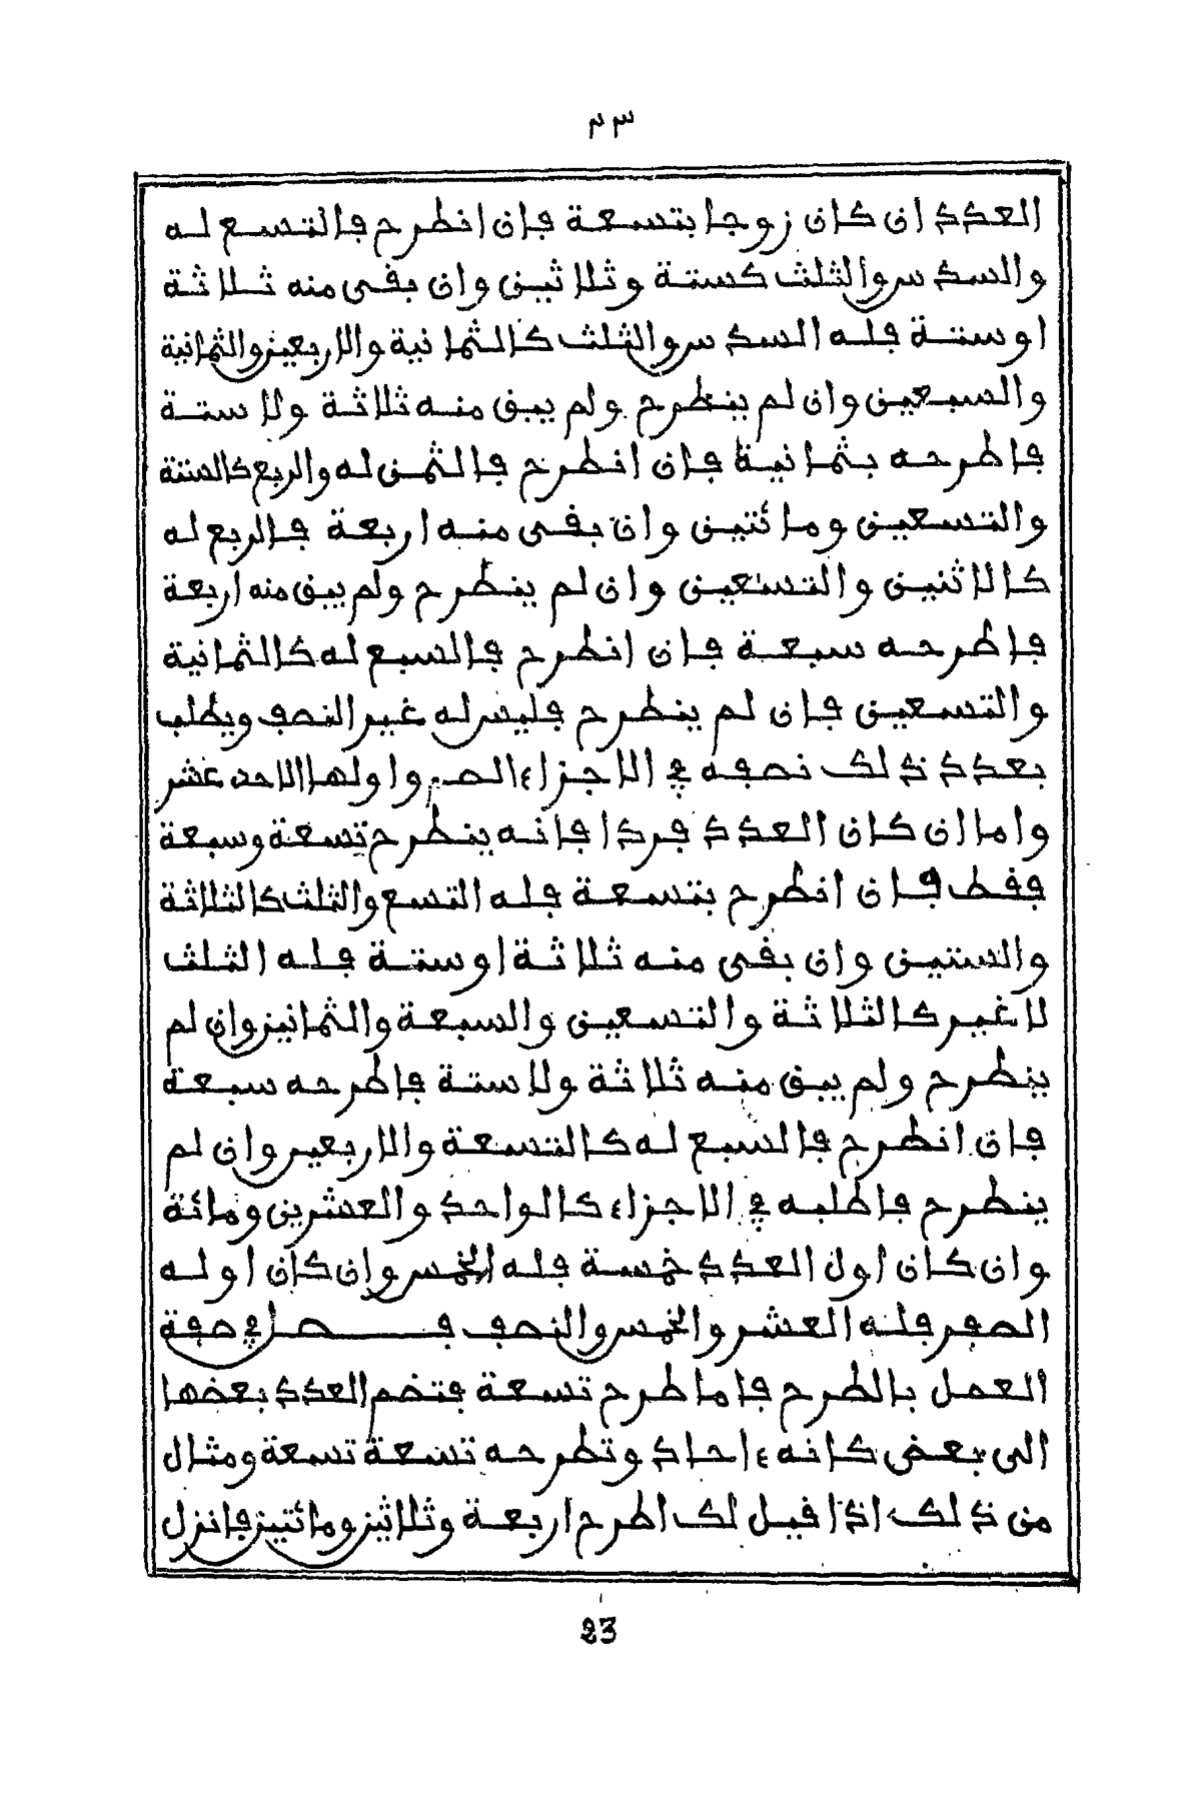 ٢٣
العدد ان كان زوجا بتسعة فإن انطرح فالتسع له
والسدس والثلث كستة وثلاثين وان بقى منه ثلاثة
اوستة فله السدس والثلث كالثمانية والاربعين والثمانية
والسبعين وان لم ينطرح ولم يبق منه ثلاثة ولا ستة
فاطرحه بثمانية فإن انطرح فالثمن له والربع كالستة
والتسعين ومائتين وان بقى منه اربعة فالربع له
كالاثنين والتسعين وان لم ينطرح ولم يبق منه اربعة
فاطرحه سبعة فان انطرح فالسبع له كالثمانية
والتسعين فان لم ينطرح فليس له غير النصف ويطلب
بعدد ذلك نصفه في الاجزاء الصم واولها الاحد عشر
واما ان كان العدد فردا فانه ينطرح تسعة وسبعة
فقط فان انطرح بتسعة فله التسع والثلث كالثلاثة
والستين وان بقى منه ثلاثة اوستة فله الثلث
لا غير كالثلاثة والتسعين والسبعة والثمانين وان لم
ينطرح ولم يبق منه ثلاثة ولا ستة فاطرحه سبعة
فان انطرح فالسبع له كالتسعة والاربعين وان لم
ينطرح فاطلبه في الاجزاء كالواحد والعشرين ومائة
وان كان اول العدد خمسة فله الخمس وان كان اوله
الصفر فله العشر والخمس والنصف فصل في صفة
العمل بالطرح فاما طرح تسعة فتضم العدد بعضها
الى بعض كانه ءاحاد وتطرحه تسعة تسعة ومثال
من ذلك اذا قيل لك اطرح اربعة وثلاثين ومائتين فانزل
23